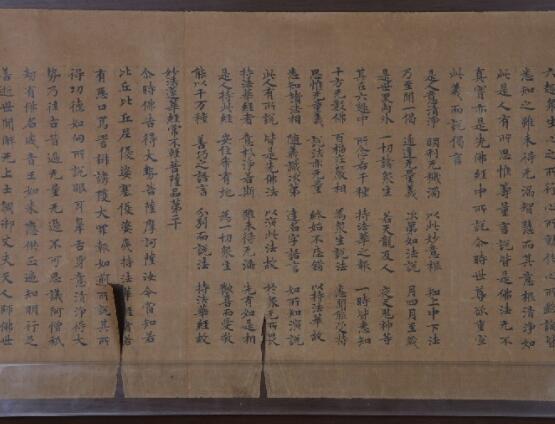 悉知之雖未得无漏智慧而其意根清淨如
此是人有所思惟籌量言說皆是佛法无不
真實亦是先佛經中所說尒時世尊欲重宣
此義而說偈言
是人意清淨 明利无穢濁 以此妙意根 知上中下法
乃至聞一偈 通達无量義 次第如法說 月四月至歲
是世界內外 一切諸衆生 若天龍及人 夜叉鬼神等
其在六趣中 所念若干種 持法華之報 一時皆悉知
十方无數佛 百福莊嚴相 為衆生說法 悉聞能受持
思惟无量義 說法亦无量 終始不忘錯 以持法華故
悉知諸法相 隨義識次第 達名字語言 如所知演說
此人有所說 皆是先佛法 以演此法故 於衆无所畏
持法華經者 意根淨若斯 雖未得无漏 先有如是相
是人持此經 安住希有地 為一切衆生 歡喜而愛敬
能以千万種 善巧之語言 分別而說法 持法華經故
妙法蓮華經常不輕菩薩品第二十
尒時佛告得大勢菩薩摩訶薩汝今當知若
比丘比丘尼優婆塞優婆夷持法華經者若
有惡口罵詈誹謗獲大罪報如前所說其所
得功德如向所說眼耳鼻舌身意清淨得大
勢乃往古昔過无量无邊不可思議阿僧祇
劫有佛名威音王如來應供正遍知明行足
善逝世間解无上士調御丈夫天人師佛世